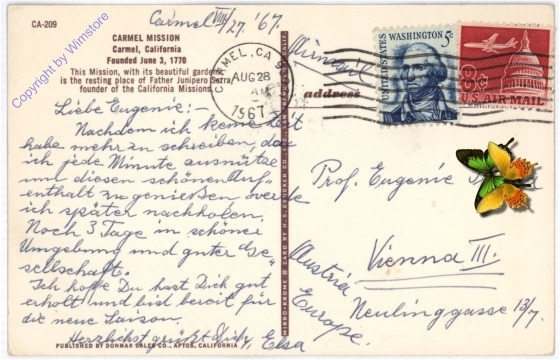 CA-209
Carmel VIII/27. '67.
CARMEL MISSION
Carmel, California
Founded June 3, 1770
This Mission, with its beautiful gardens
is the resting place of Father Junipero Serra,
founder of the California Missions
Copyright by Wimstore
Liebe Eugenie: -
Nachdem ich keine Zeit
habe mehr zu schreiben, da
ich jede Minute ausnütze
und diesen schönen Auf-
enthalt zu genießen werde
ich später nachholen.
Noch 3 Tage in schöner
Umgebung und guter Ge-
sellschaft.
Ich hoffe Du hast Dich gut
erholt und bist bereit für
die neue Saison.
Herzlichst grüßt Dich, Elsa
PUBLISHED BY DONMAR SALES CO., APTOS, CALIFORNIA
MIRRO-KROME ® CARD BY H. S. CROCKER CO.
CARMEL, CA
AUG 28
AM
1967
UNITED STATES
WASHINGTON 5c
8c
U.S. AIR MAIL
Airmail
address
Prof. Eugenie
Vienna III.
Neulinggasse 13/7.
Austria
Europe.